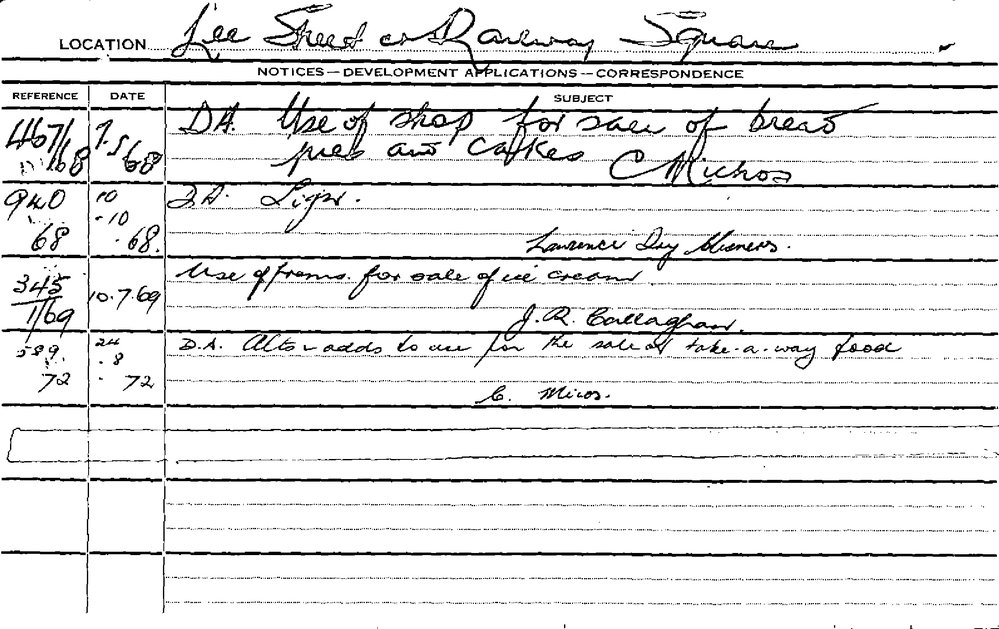 LOCATION Lee Street cr Railway Square
NOTICES — DEVELOPMENT APPLICATIONS — CORRESPONDENCE
REFERENCE DATE SUBJECT
467/68 7.5.68 D.A. Use of shop for sale of bread
pies and cakes C Michos
940 10 D.A. Sign.
-10
68 .68. Laurence Dry
Use of prems. for sale of ice cream
345 10.7.69
1/69 J.R. Callaghan.
589. 24 D.A. Alts adds to use for the sale of take-a-way food
.8
72 . 72
C. Micos.